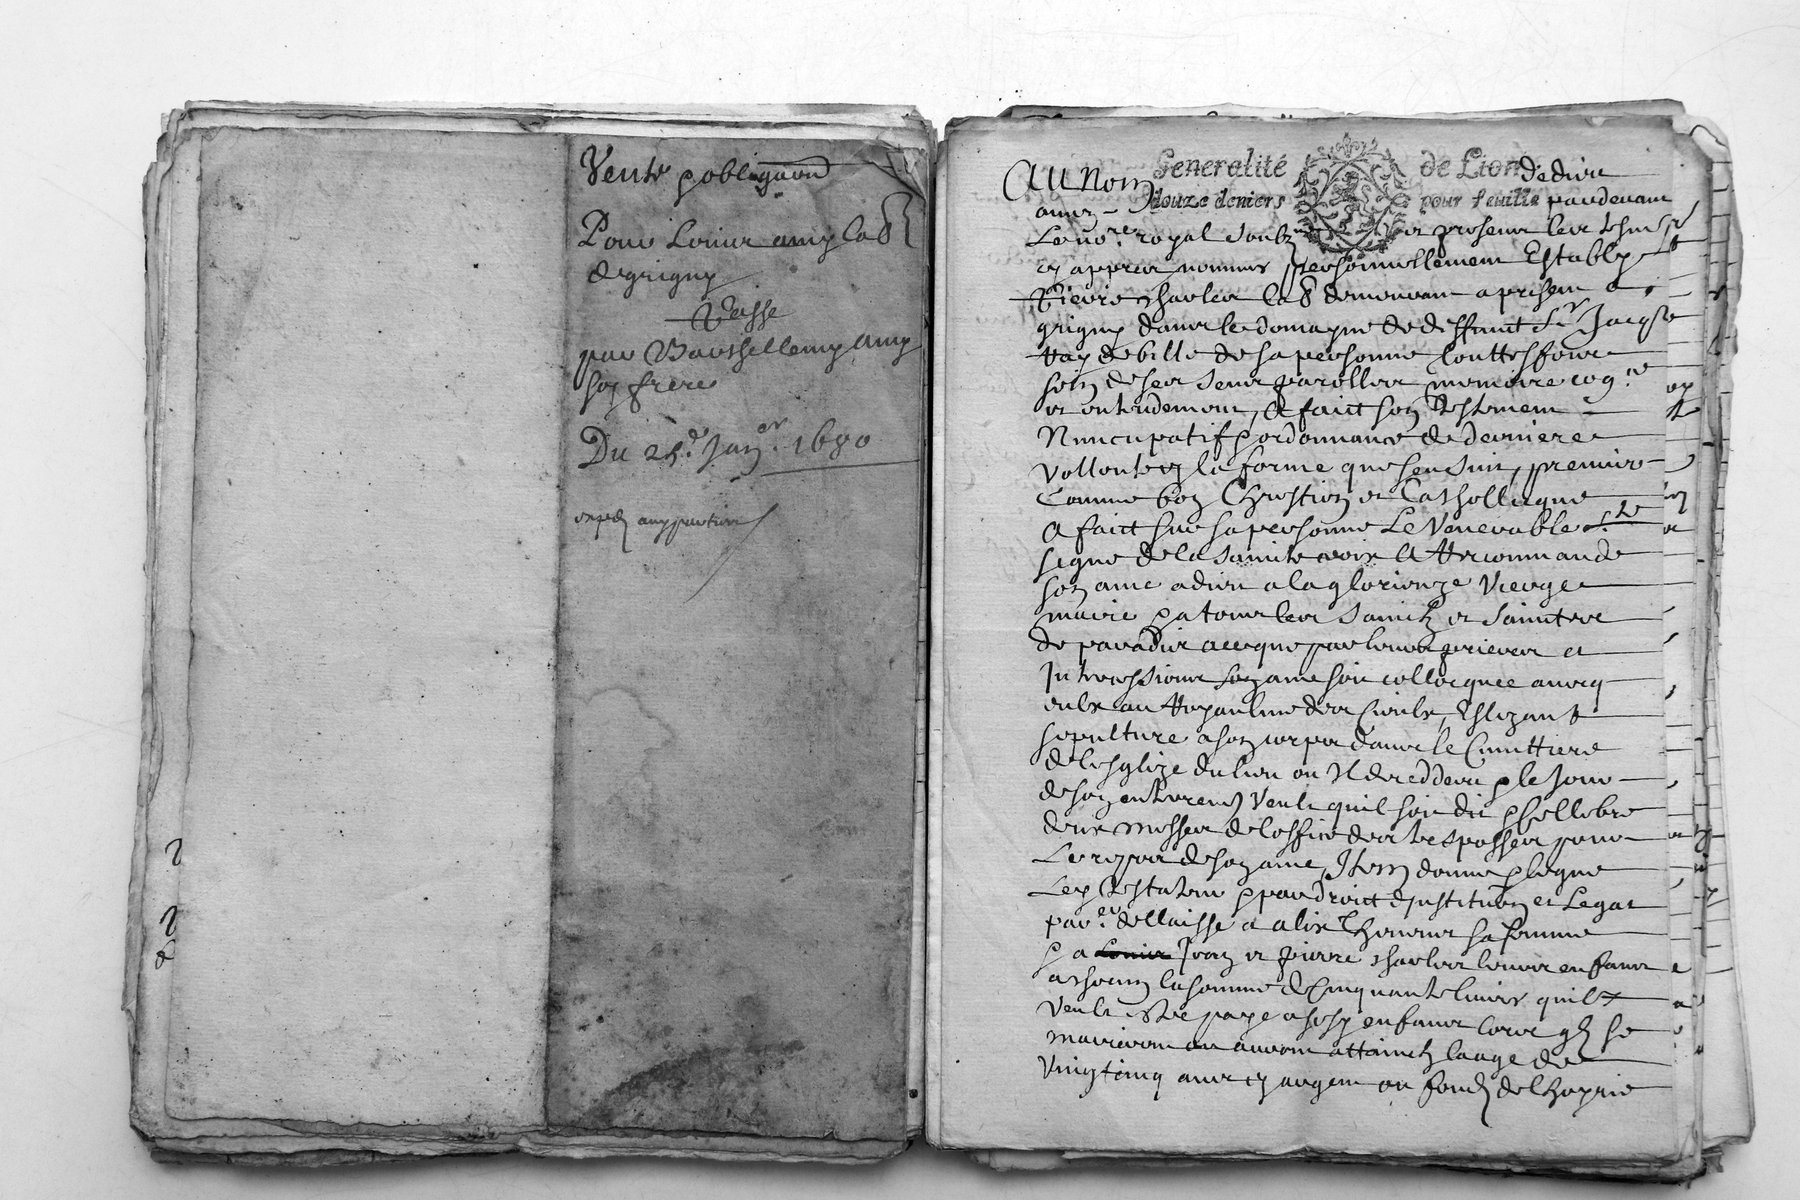 Vente & obligaon
Pour Louis amy la&r
de grigny
Passé
par Barthellemy Amy
son frere
Du 25e Janer. 1680
exped aux parties
Generalité de Lion
douze deniers pour feuille
Au Nom de dieu
amen pardevant
Le nore royal soubzne et presens les tesmn
cy appres nommes personnellement Estably
Pierre Charles demeurant a presant a
grigny dans le domayne de deffunt Sr Jacqs
de sa personne
soin de ses sens parolles memoire cogce
et entendement, A faict son Testement
Nuncupatif & ordonnance de derniere
vollonte en la forme que sensuit, premiere
Comme bon Chrestien et Cathollicque
A faict sur sa personne Le Venerable
signe de la sainte croix A Recommande
son ame a dieu a la glorieuze vierge
marie & a tous les saincts et sainctes
de paradis a ce que par leurs prieres et
Intercessions son ame soit collocquee avecq
eulx au Royaulme des Cieulx, Eslizant
sepulture a son corps dans le Cimittiere
de lesglize du lieu ou Il deceddera & le Jour
de son enterremt veult quil soit dit & cellebre
deux messes de loffice des trespasses pour
Le repos de son ame, Item donne & legue
Led Testateur & par droict dinstitution et Legat
parer dellaisse a alix Thevenet sa femme
& a Jean et pierre Charles leurs enfans
a chacun la somme de Cinquante livres quil
veult estre paye a sesd enfans lors qlz se
marieront ou auront attainctz laage de
vingt cinq ans en argent ou fondz de lhoyrie